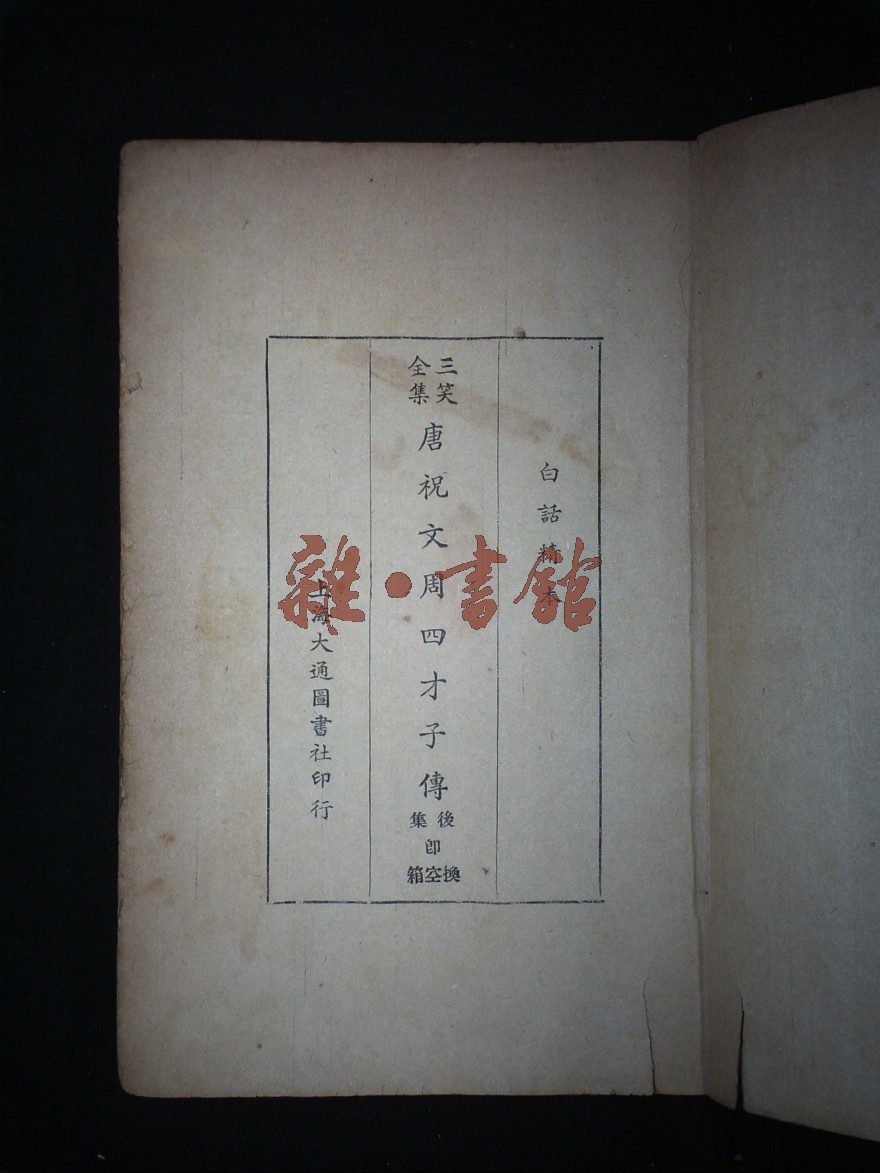 白話精本
三笑
全集
唐祝文周四才子傳
後集
即
換空箱
上海大通圖書社印行
雜·書館